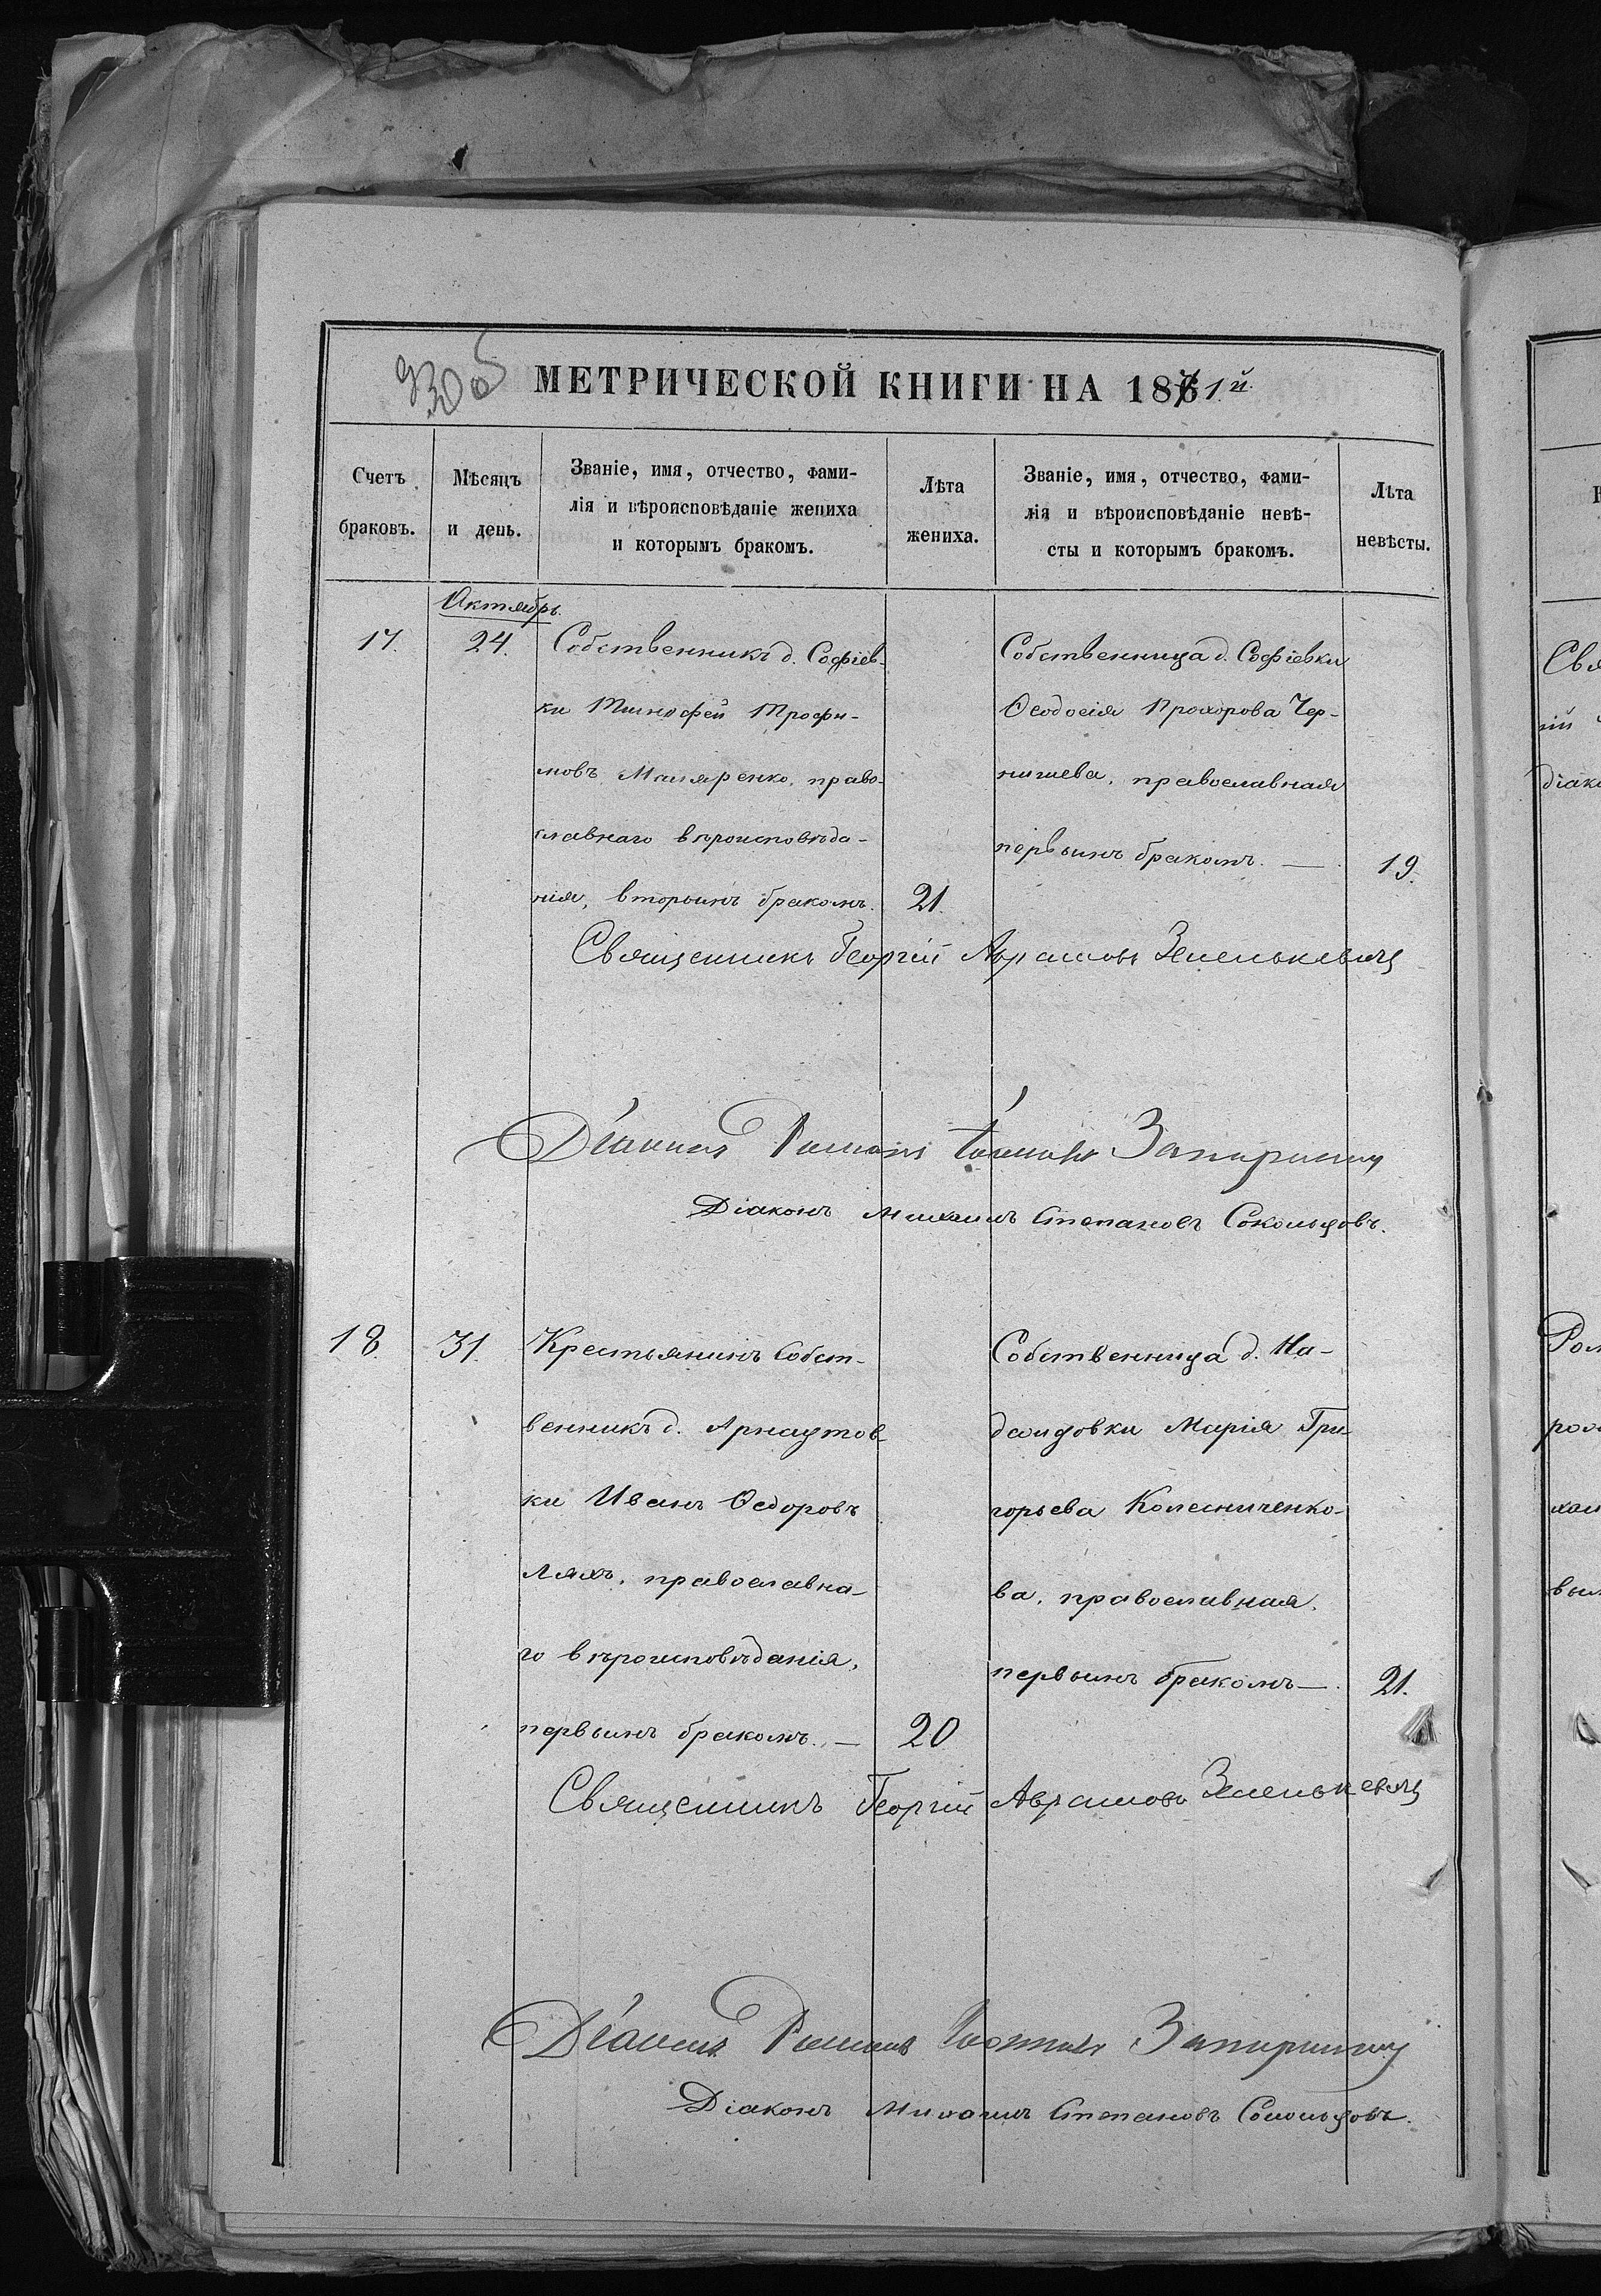 930 об
МЕТРИЧЕСКОЙ КНИГИ НА 1871й.
Счетъ браковъ.
Мѣсяцъ и день.
Званіе, имя, отчество, фами-
лія и вѣроисповѣданіе жениха
и которымъ бракомъ.
Лѣта жениха.
Званіе, имя, отчество, фами-
лія и вѣроисповѣданіе невѣ-
сты и которымъ бракомъ.
Лѣта невѣсты.
Октябрь.
17. 24.
Собственникъ д. Софіев-
ки Тимофей Трофи-
мовъ Маляренко, право-
славнаго вѣроисповѣда-
нія, вторымъ бракомъ. 21.
Собственница д. Софіевки
Ѳеодосія Прохорова Чер-
нишева, православная
первымъ бракомъ. — 19.
Священникъ Георгій Аврамовъ Зеленькевичъ
Діаконъ Романъ
Діаконъ Михаилъ Степановъ Сокольцовъ.
18. 31.
Крестьянинъ Собст-
венникъ д. Арнаутов-
ки Иванъ Ѳедоровъ
Ляхъ, православна-
го вѣроисповѣданія,
первымъ бракомъ. — 20
Собственница д. На-
деждовки Марія Гри-
горьева Колесниченко-
ва, православная,
первымъ бракомъ —. 21.
Священникъ Георгій Аврамовъ Зеленькевичъ
Діаконъ Романъ
Діаконъ Михаилъ Степановъ Сокольцовъ.